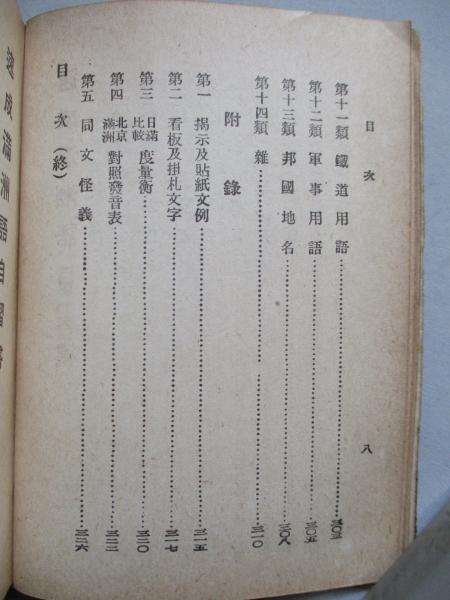 目次
八
第十一類 鐵道用語…三〇三
第十二類 軍事用語…三〇五
第十三類 邦國地名…三〇八
第十四類 雜…三一〇
附錄
第一 揭示及貼紙文例…三一五
第二 看板及掛札文字…三一七
第三 日滿比較度量衡…三二〇
第四 北京滿洲對照發音表…三二三
第五 同文怪義…三二六
目次(終)
速成滿洲語自習書